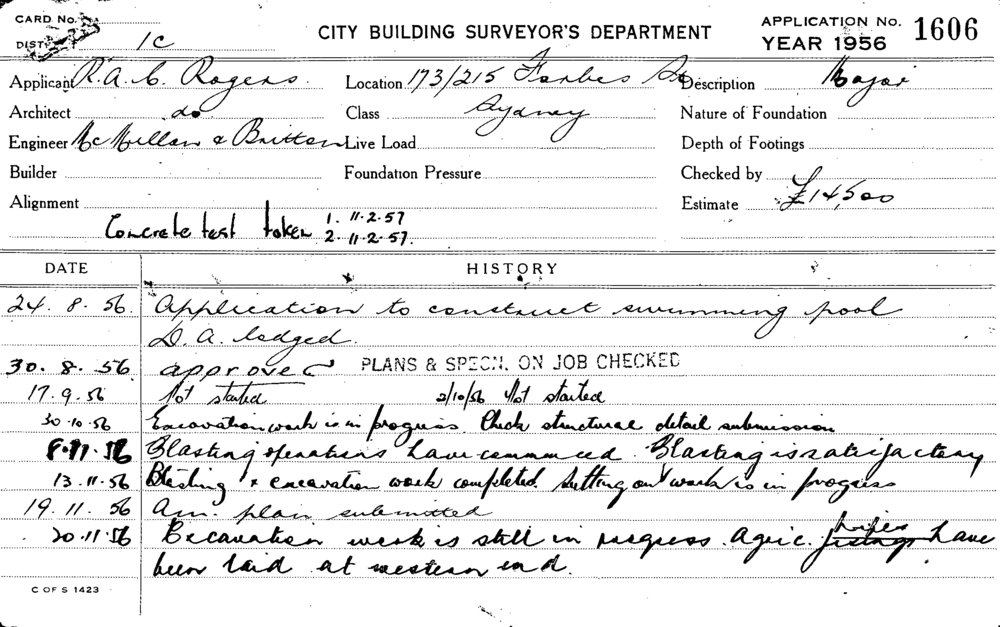 CARD No.
DIST. 1C
CITY BUILDING SURVEYOR'S DEPARTMENT
APPLICATION No. 1606
YEAR 1956
Applicant R.A.C. Rogers. Location 173/215 Forbes St Description Major
Architect do Class Sydney Nature of Foundation
Engineer McMillan & Britton Live Load Depth of Footings
Builder Foundation Pressure Checked by
Alignment Estimate £14,500
Concrete test taken 1. 11-2-57
2. 11-2-57.
DATE HISTORY
24. 8. 56. Application to construct swimming pool
D.A. lodged.
30. 8. 56 approved PLANS & SPECN. ON JOB CHECKED
17.9.56 Not started 2/10/56 Not started
30.10.56 Excavation work is in progress. Check structural detail submission
8.11.56 Blasting operations have commenced. Blasting is satisfactory
13.11.56 Blasting & excavation work completed. Setting out work is in progress
19.11.56 Am. plan submitted
20.11.56 Excavation work is still in progress. Agric. pipes have
been laid at western end.
C OF S 1423